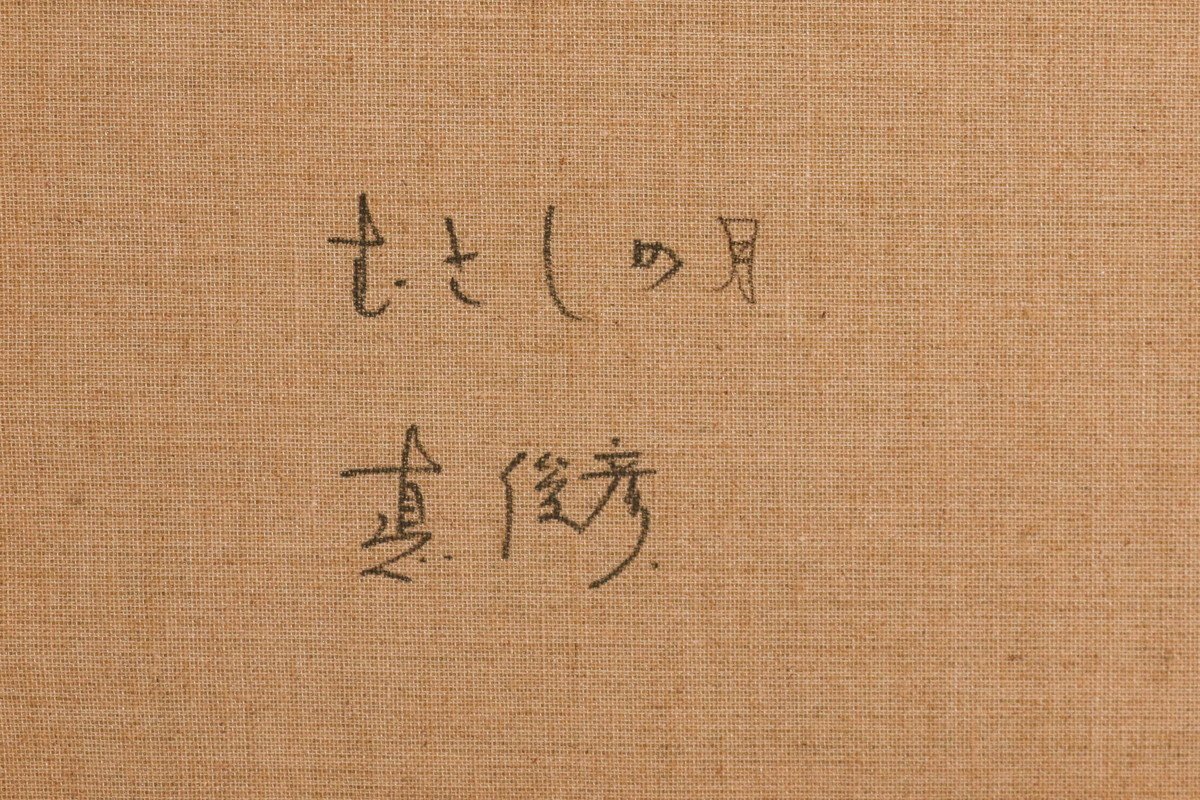 むさしの月
真 俊彦